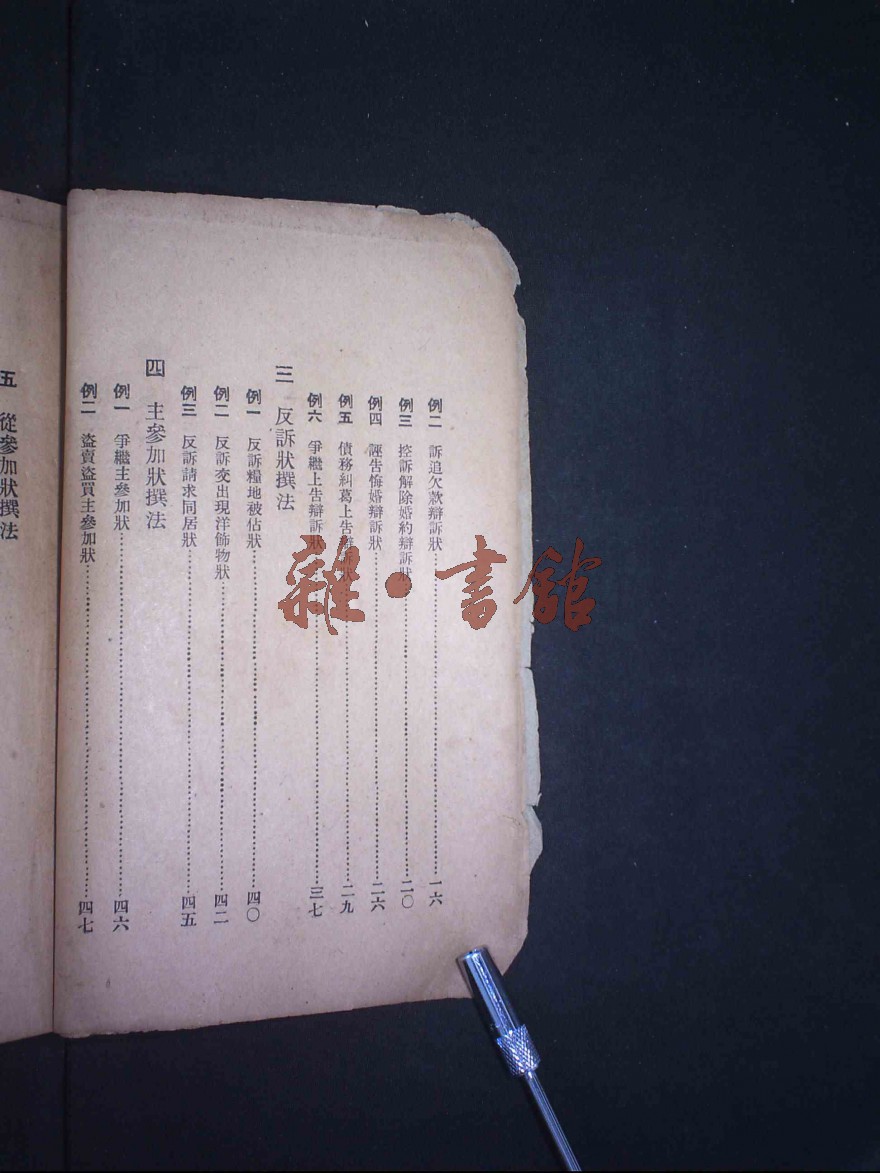 例二　訴追欠欵辯訴狀…………一六
例三　控訴解除婚約辯訴狀…………二〇
例四　誣告悔婚辯訴狀…………二六
例五　債務糾葛上告辯訴狀…………二九
例六　爭繼上告辯訴狀…………三七
三　反訴狀撰法
例一　反訴糧地被佔狀…………四〇
例二　反訴交出現洋飾物狀…………四二
例三　反訴請求同居狀…………四五
四　主參加狀撰法
例一　爭繼主參加狀…………四六
例二　盜賣盜買主參加狀…………四七
五　從參加狀撰法
雜・書館